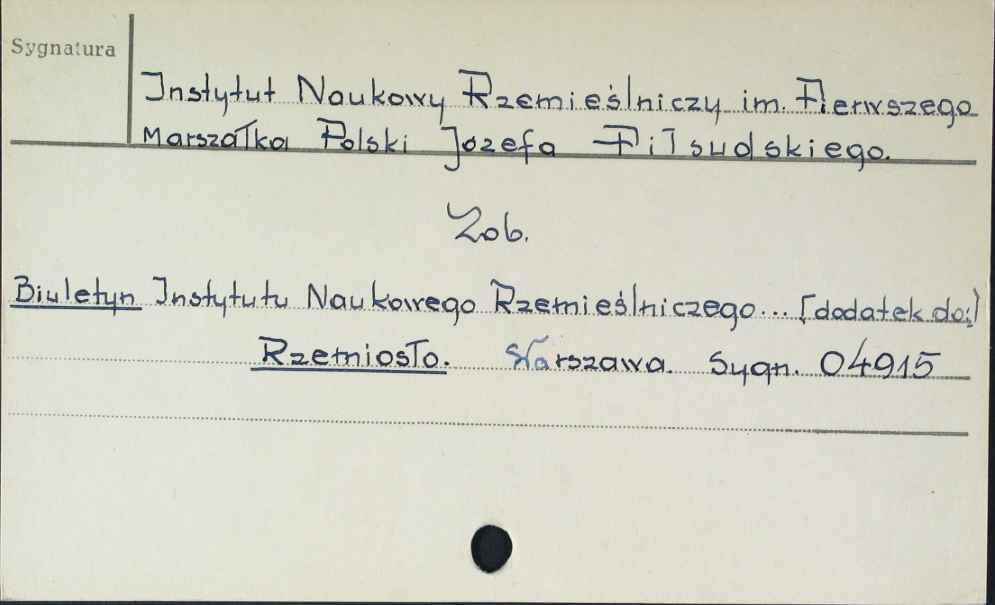 Sygnatura
Instytut Naukowy Rzemieślniczy im. Pierwszego
Marszałka Polski Józefa Piłsudskiego.
Zob.
Biuletyn Instytutu Naukowego Rzemieślniczego... [dodatek do:]
Rzemiosło. Warszawa. Sygn. 04915